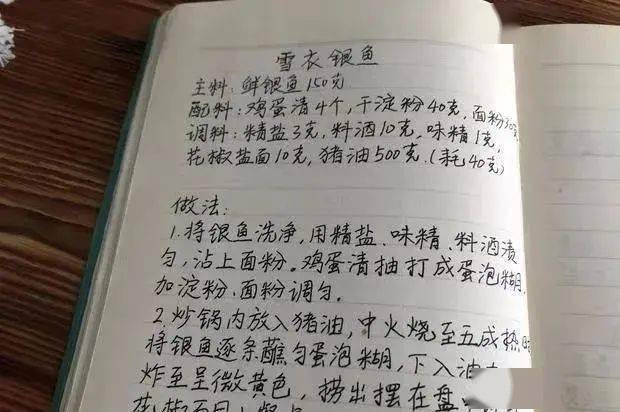 雪衣银鱼
主料:鲜银鱼150克
配料:鸡蛋清4个,干淀粉40克,面粉
调料:精盐3克,料酒10克,味精1克,
花椒盐面10克,猪油500克.(耗40克)
做法:
1.将银鱼洗净,用精盐、味精、料酒渍
匀,沾上面粉。鸡蛋清抽打成蛋泡糊,
加淀粉、面粉调匀。
2.炒锅内放入猪油,中火烧至五成热时
将银鱼逐条蘸匀蛋泡糊,下入油
炸至呈微黄色,捞出摆在盘